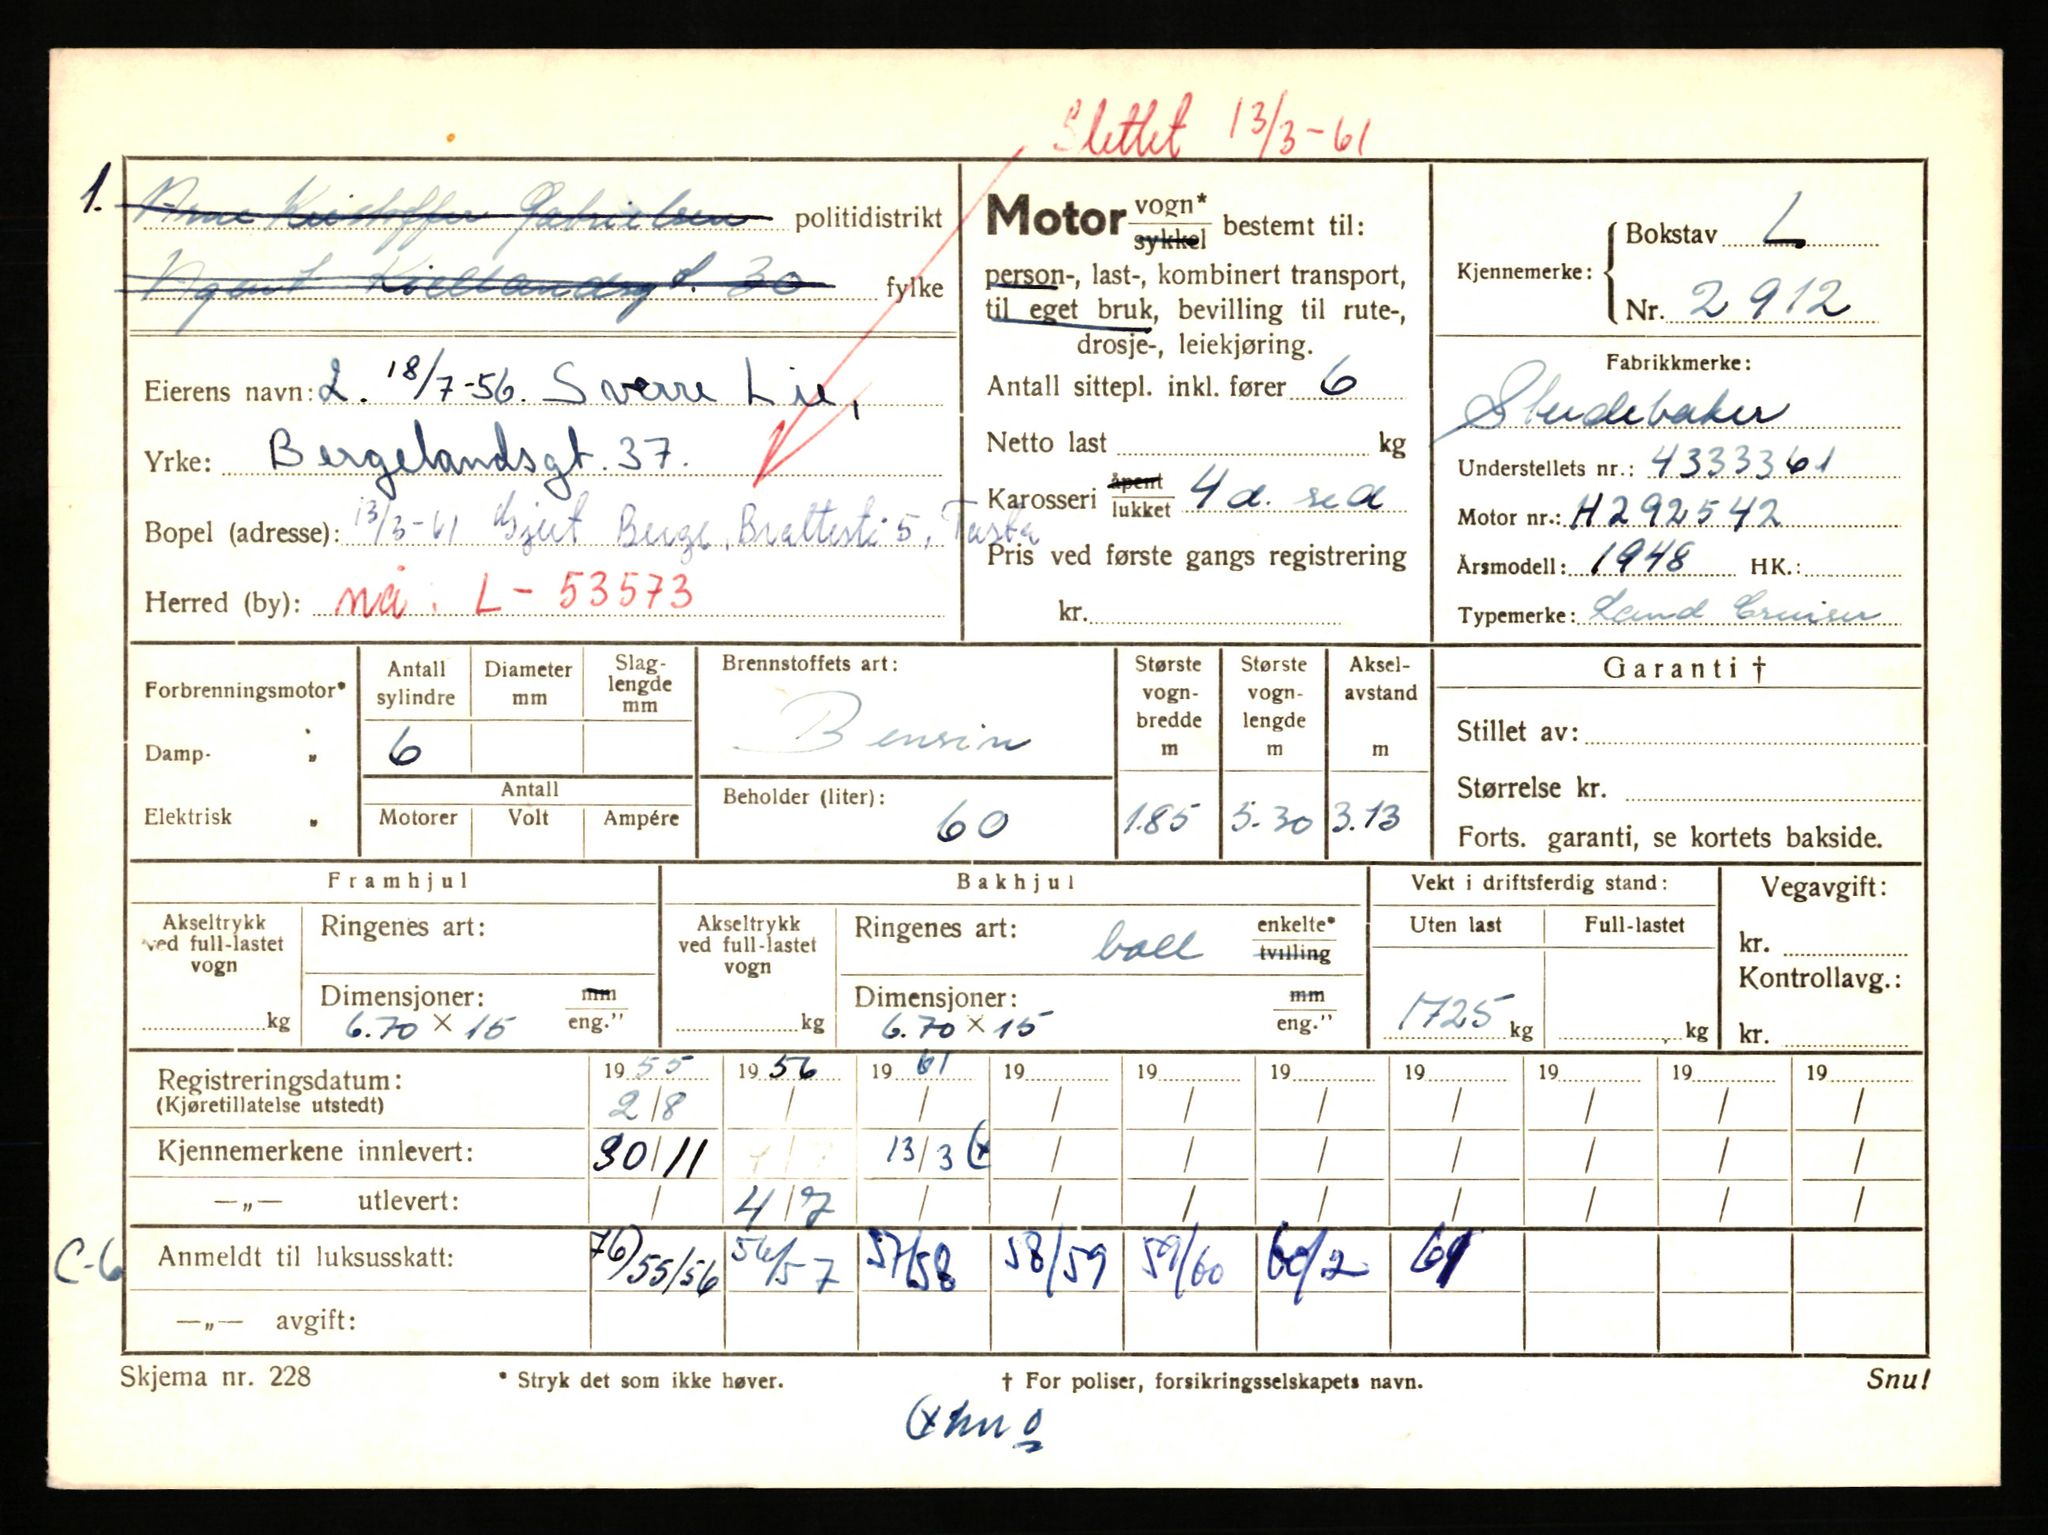 Slettet 13/3-61
1. Arne Kristoffer Gabrielsen politidistrikt
Agent Kiellandsgt. 30 fylke
Eierens navn: 2. 18/7-56. Sverre Lie,
Yrke: Bergelandsgt. 37.
Bopel (adresse): 13/3-61 Gjert Berge, Brattesti 5, Tasta
Herred (by): nå: L - 53573
Motor vogn* sykkel bestemt til:
person-, last-, kombinert transport,
til eget bruk, bevilling til rute-,
drosje-, leiekjøring.
Antall sittepl. inkl. fører 6
Netto last kg
Karosseri åpent lukket 4 d. sed
Pris ved første gangs registrering
kr.
Kjennemerke: Bokstav L
Nr. 2912
Fabrikkmerke:
Studebaker
Understellets nr.: 4333361
Motor nr.: H292542
Årsmodell: 1948 HK.:
Typemerke: Land Cruiser
Forbrenningsmotor*
Damp- „
Elektrisk „
Antall sylindre
6
Diameter mm
Slag-lengde mm
Antall
Motorer Volt Ampére
Brennstoffets art:
Bensin
Beholder (liter):
60
Største vogn-bredde m
1.85
Største vogn-lengde m
5.30
Aksel-avstand m
3.13
Garanti †
Stillet av:
Størrelse kr.
Forts. garanti, se kortets bakside.
Framhjul
Akseltrykk ved full-lastet vogn
kg
Ringenes art:
Dimensjoner: mm eng."
6.70 × 15
Bakhjul
Akseltrykk ved full-lastet vogn
kg
Ringenes art: ball enkelte* tvilling
Dimensjoner: mm eng."
6.70 × 15
Vekt i driftsferdig stand:
Uten last Full-lastet
1725 kg kg
Vegavgift:
kr.
Kontrollavg.:
kr.
Registreringsdatum: 1955 1956 1961 19 19 19 19 19 19 19
(Kjøretillatelse utstedt) 2/8 / / / / / / / / /
Kjennemerkene innlevert: 30/11 13/3 (x / / / / / / /
—„— utlevert: / 4/7 / / / / / / / /
C-6 Anmeldt til luksusskatt: 76)/55/56 56/57 57/58 58/59 59/60 60/2 61
—„— avgift:
Skjema nr. 228 * Stryk det som ikke høver. † For poliser, forsikringsselskapets navn. Snu!